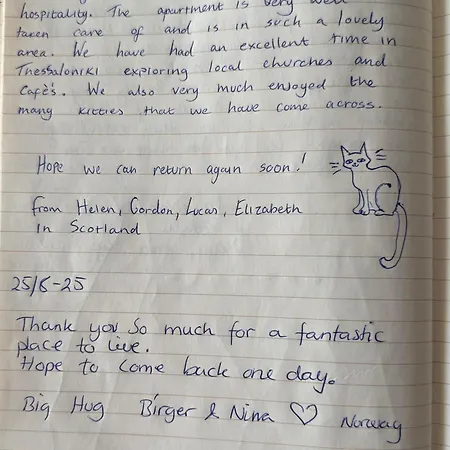 hospitality. The apartment is very well
taken care of and is in such a lovely
area. We have had an excellent time in
Thessaloniki exploring local churches and
Cafès. We also very much enjoyed the
many kitties that we have come across.
Hope we can return again soon!
from Helen, Gordon, Lucas, Elizabeth
in Scotland
25/6-25
Thank you so much for a fantastic
place to live.
Hope to come back one day.
Big Hug Birger & Nina ♡ Norway